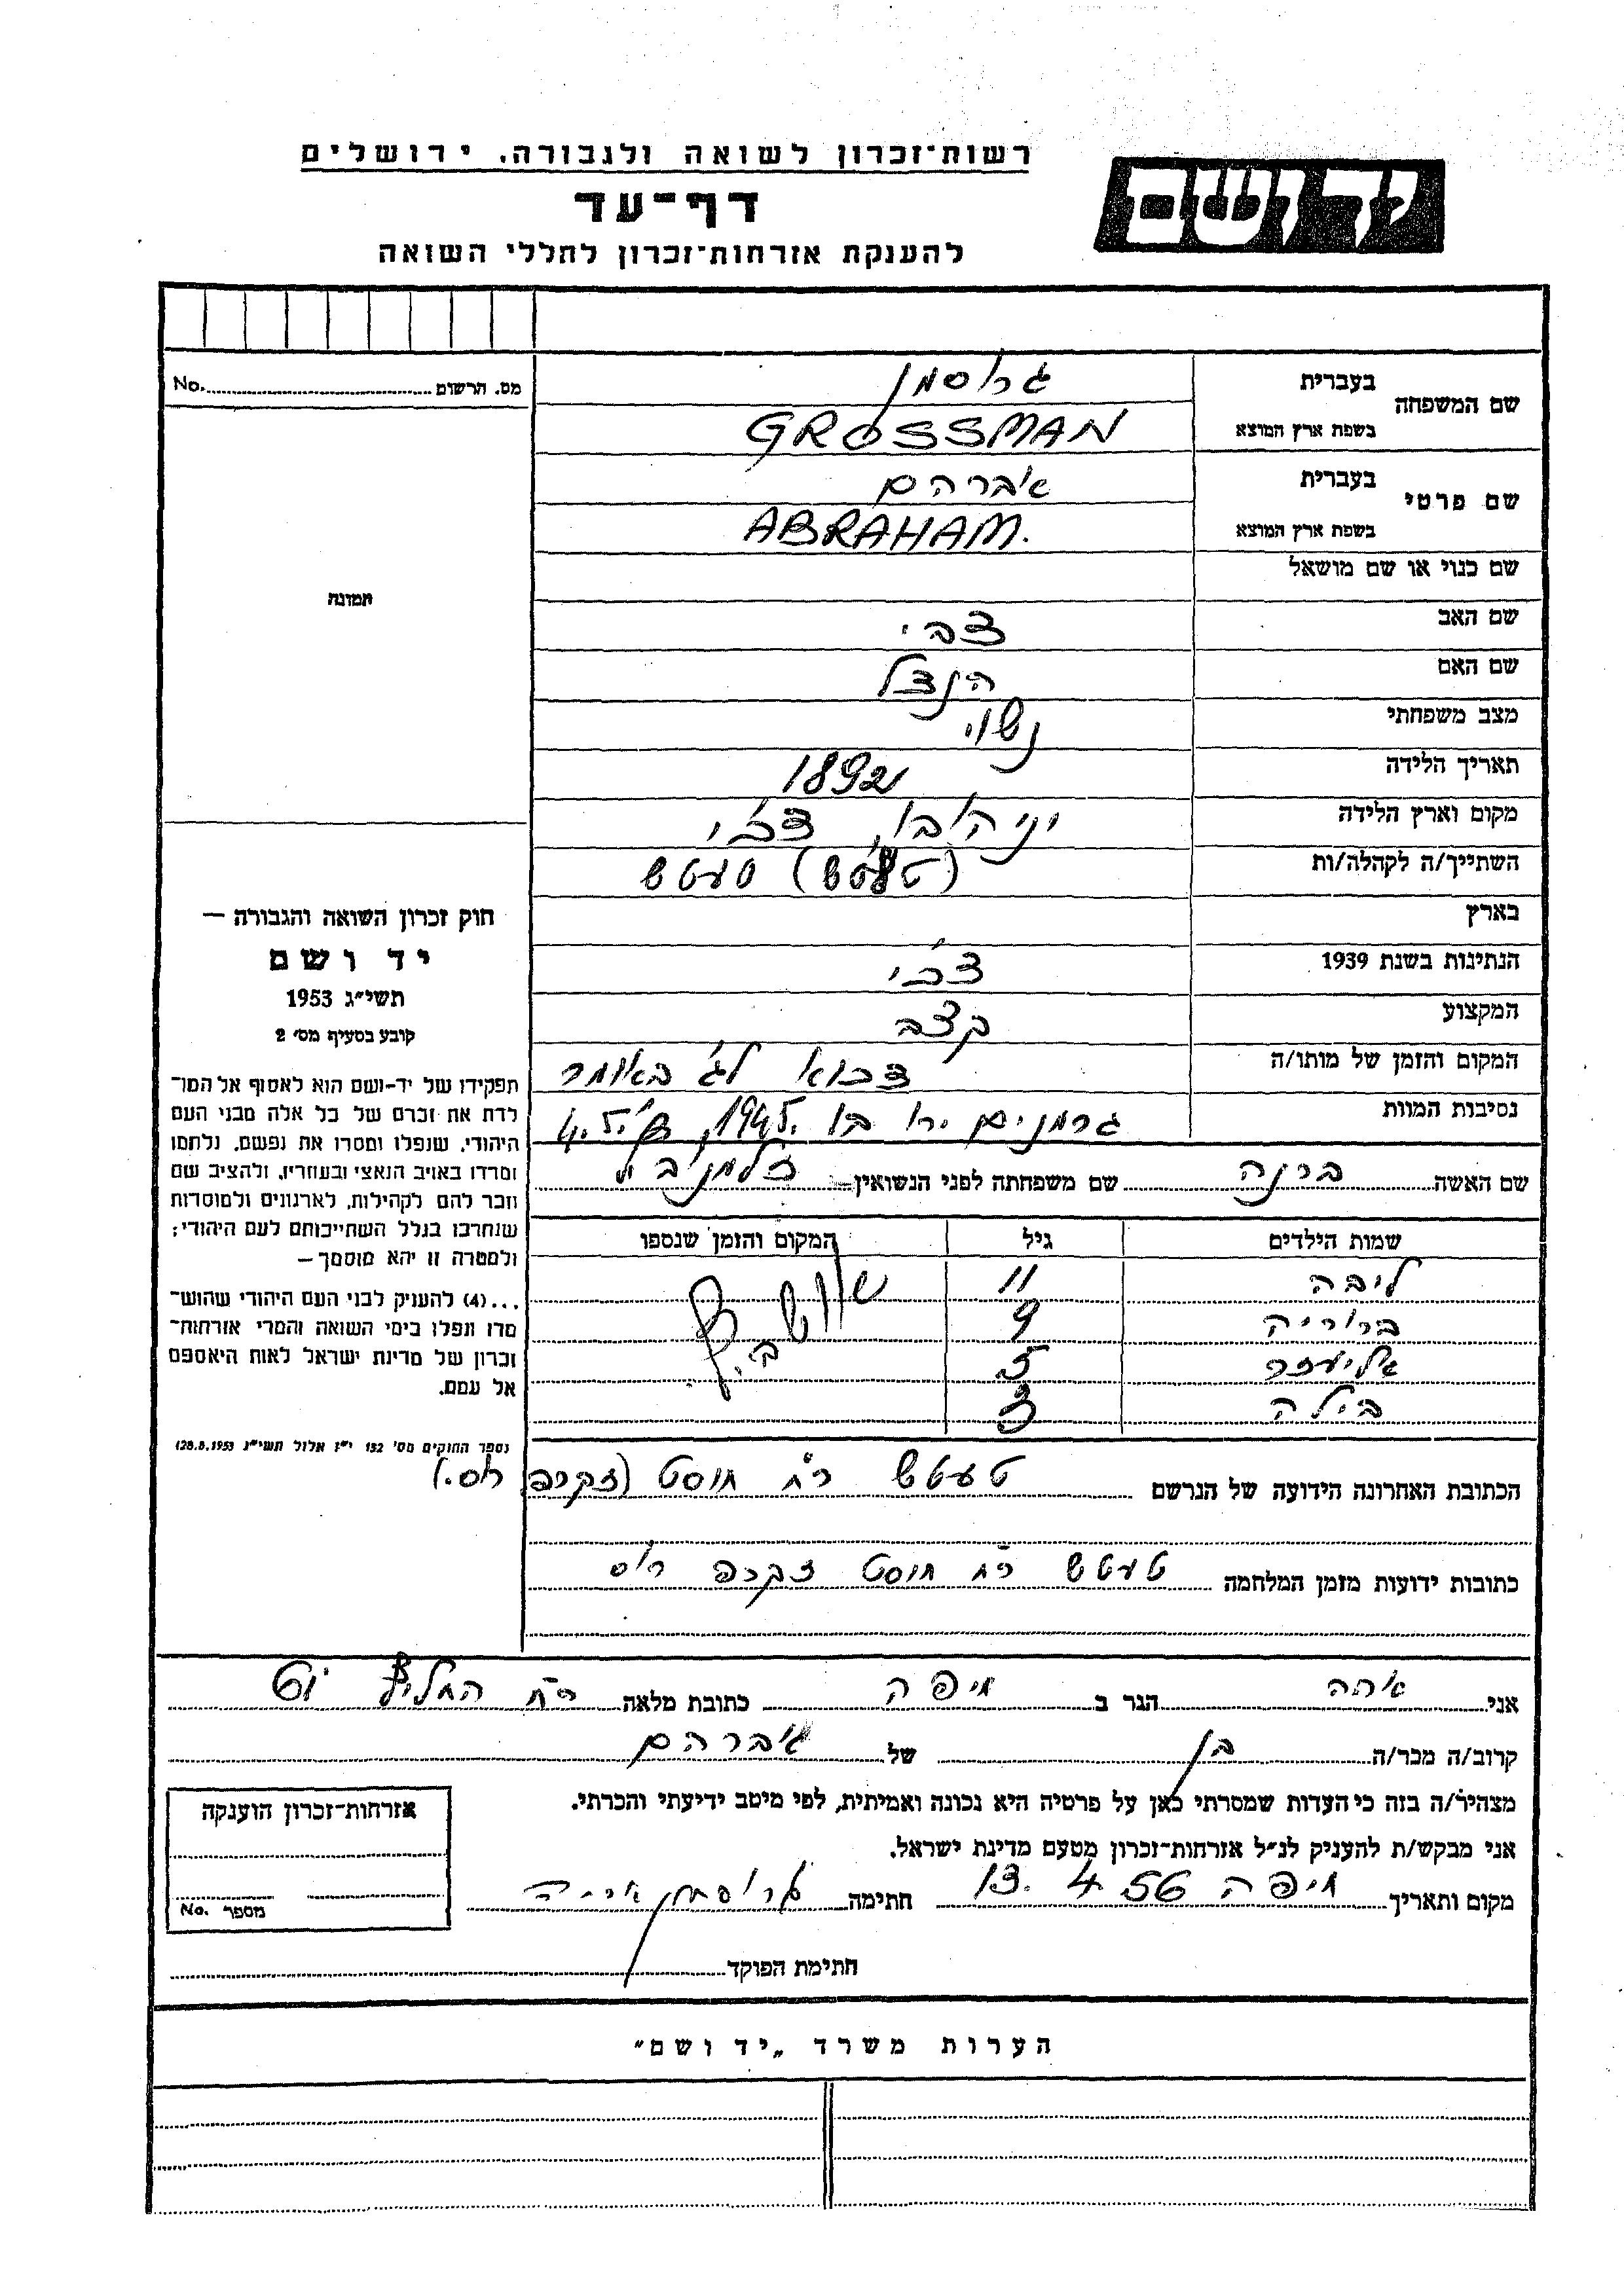 יד ושם
רשות־זכרון לשואה ולגבורה, ירושלים
דף־עד
להענקת אזרחות־זכרון לחללי השואה
מס. הרשום No.
תמונה
שם המשפחה
בעברית גרוסמן
בשפת ארץ המוצא GROSSMAN
שם פרטי
בעברית אברהם
בשפת ארץ המוצא ABRAHAM.
שם כנוי או שם מושאל
שם האב צבי
שם האם הנצל
מצב משפחתי נשוי
תאריך הלידה 1892
מקום וארץ הלידה צ'כי
השתייך/ה לקהלה/ות טעטש
בארץ
הנתינות בשנת 1939 צ'כי
המקצוע קצב
המקום והזמן של מותו/ה לג באומר
נסיבות המוות גרמנים ירו בו 1945
שם האשה ברנה שם משפחתה לפני הנשואין
שמות הילדים גיל המקום והזמן שנספו
ליבה 11
ברוריה 9
אליעזר 5
בילה 3
הכתובת האחרונה הידועה של הנרשם טעטש חוסט
כתובות ידועות מזמן המלחמה טעטש חוסט
חוק זכרון השואה והגבורה —
יד ושם
תשי״ג 1953
קובע בסעיף מס׳ 2
תפקידו של יד־ושם הוא לאסוף אל המו־
לדת את זכרם של כל אלה מבני העם
היהודי, שנפלו ומסרו את נפשם, נלחמו
ומרדו באויב הנאצי ובעוזריו, ולהציב שם
וזכר להם לקהילות, לארגונים ולמוסדות
שנחרבו בגלל השתייכותם לעם היהודי;
ולמטרה זו יהא מוסמך —
...(4) להעניק לבני העם היהודי שהוש־
מדו ונפלו בימי השואה והמרי אזרחות־
זכרון של מדינת ישראל לאות היאספם
אל עמם.
(ספר החוקים מס׳ 132 י״ז אלול תשי״ג 28.8.1953)
אני הגר ב חיפה כתובת מלאה רח
קרוב/ה מכר/ה בן של אברהם
מצהיר/ה בזה כי העדות שמסרתי כאן על פרטיה היא נכונה ואמיתית, לפי מיטב ידיעתי והכרתי.
אני מבקש/ת להעניק לנ״ל אזרחות־זכרון מטעם מדינת ישראל.
מקום ותאריך חיפה 13.4.56 חתימה גרוסמן
חתימת הפוקד
אזרחות־זכרון הוענקה
מספר No.
הערות משרד „יד ושם״